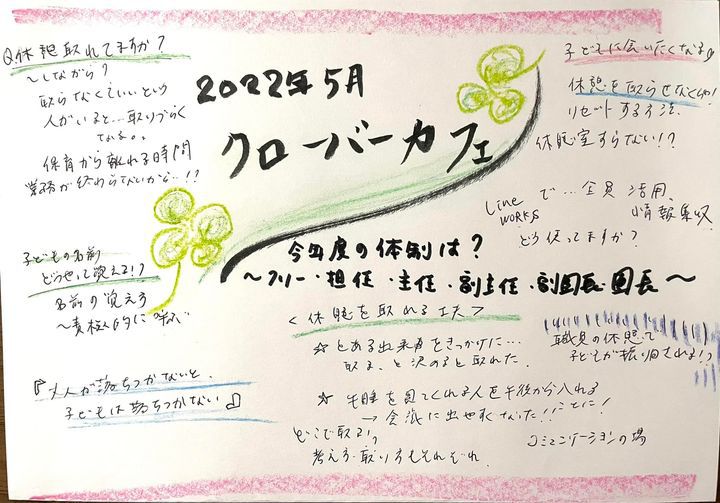 Q.休憩取れてますか?
〜しながら?
取らなくていいという
人がいると…取りづらく
なる。。
保育から離れる時間
業務が終わらないから…!!
2022年5月
クローバーカフェ
子どもに会いたくなる
休憩を取らせなくゃ!
リセットする方法
休憩室すらない!?
LINE WORKS で…全員活用、
情報集収
どう使ってますか?
子どもの名前
どうやって覚える!?
名前の覚え方
〜積極的に呼ぶ
今年度の体制は?
〜フリー・担任・主任・副主任・副園長・園長〜
<休憩を取れる工夫>
☆とある出来事をきっかけに…
取る、と決めると取れた。
☆午睡を見てくれる人を午後から入れる
→会議に出やすくなった!!ことに!
どこで取る!?
考え方・取り方もそれぞれ
職員の休憩で
子どもが振り回される!?
コミュニケーションの場
『大人が落ちつかないと、
子どもは落ちつかない』